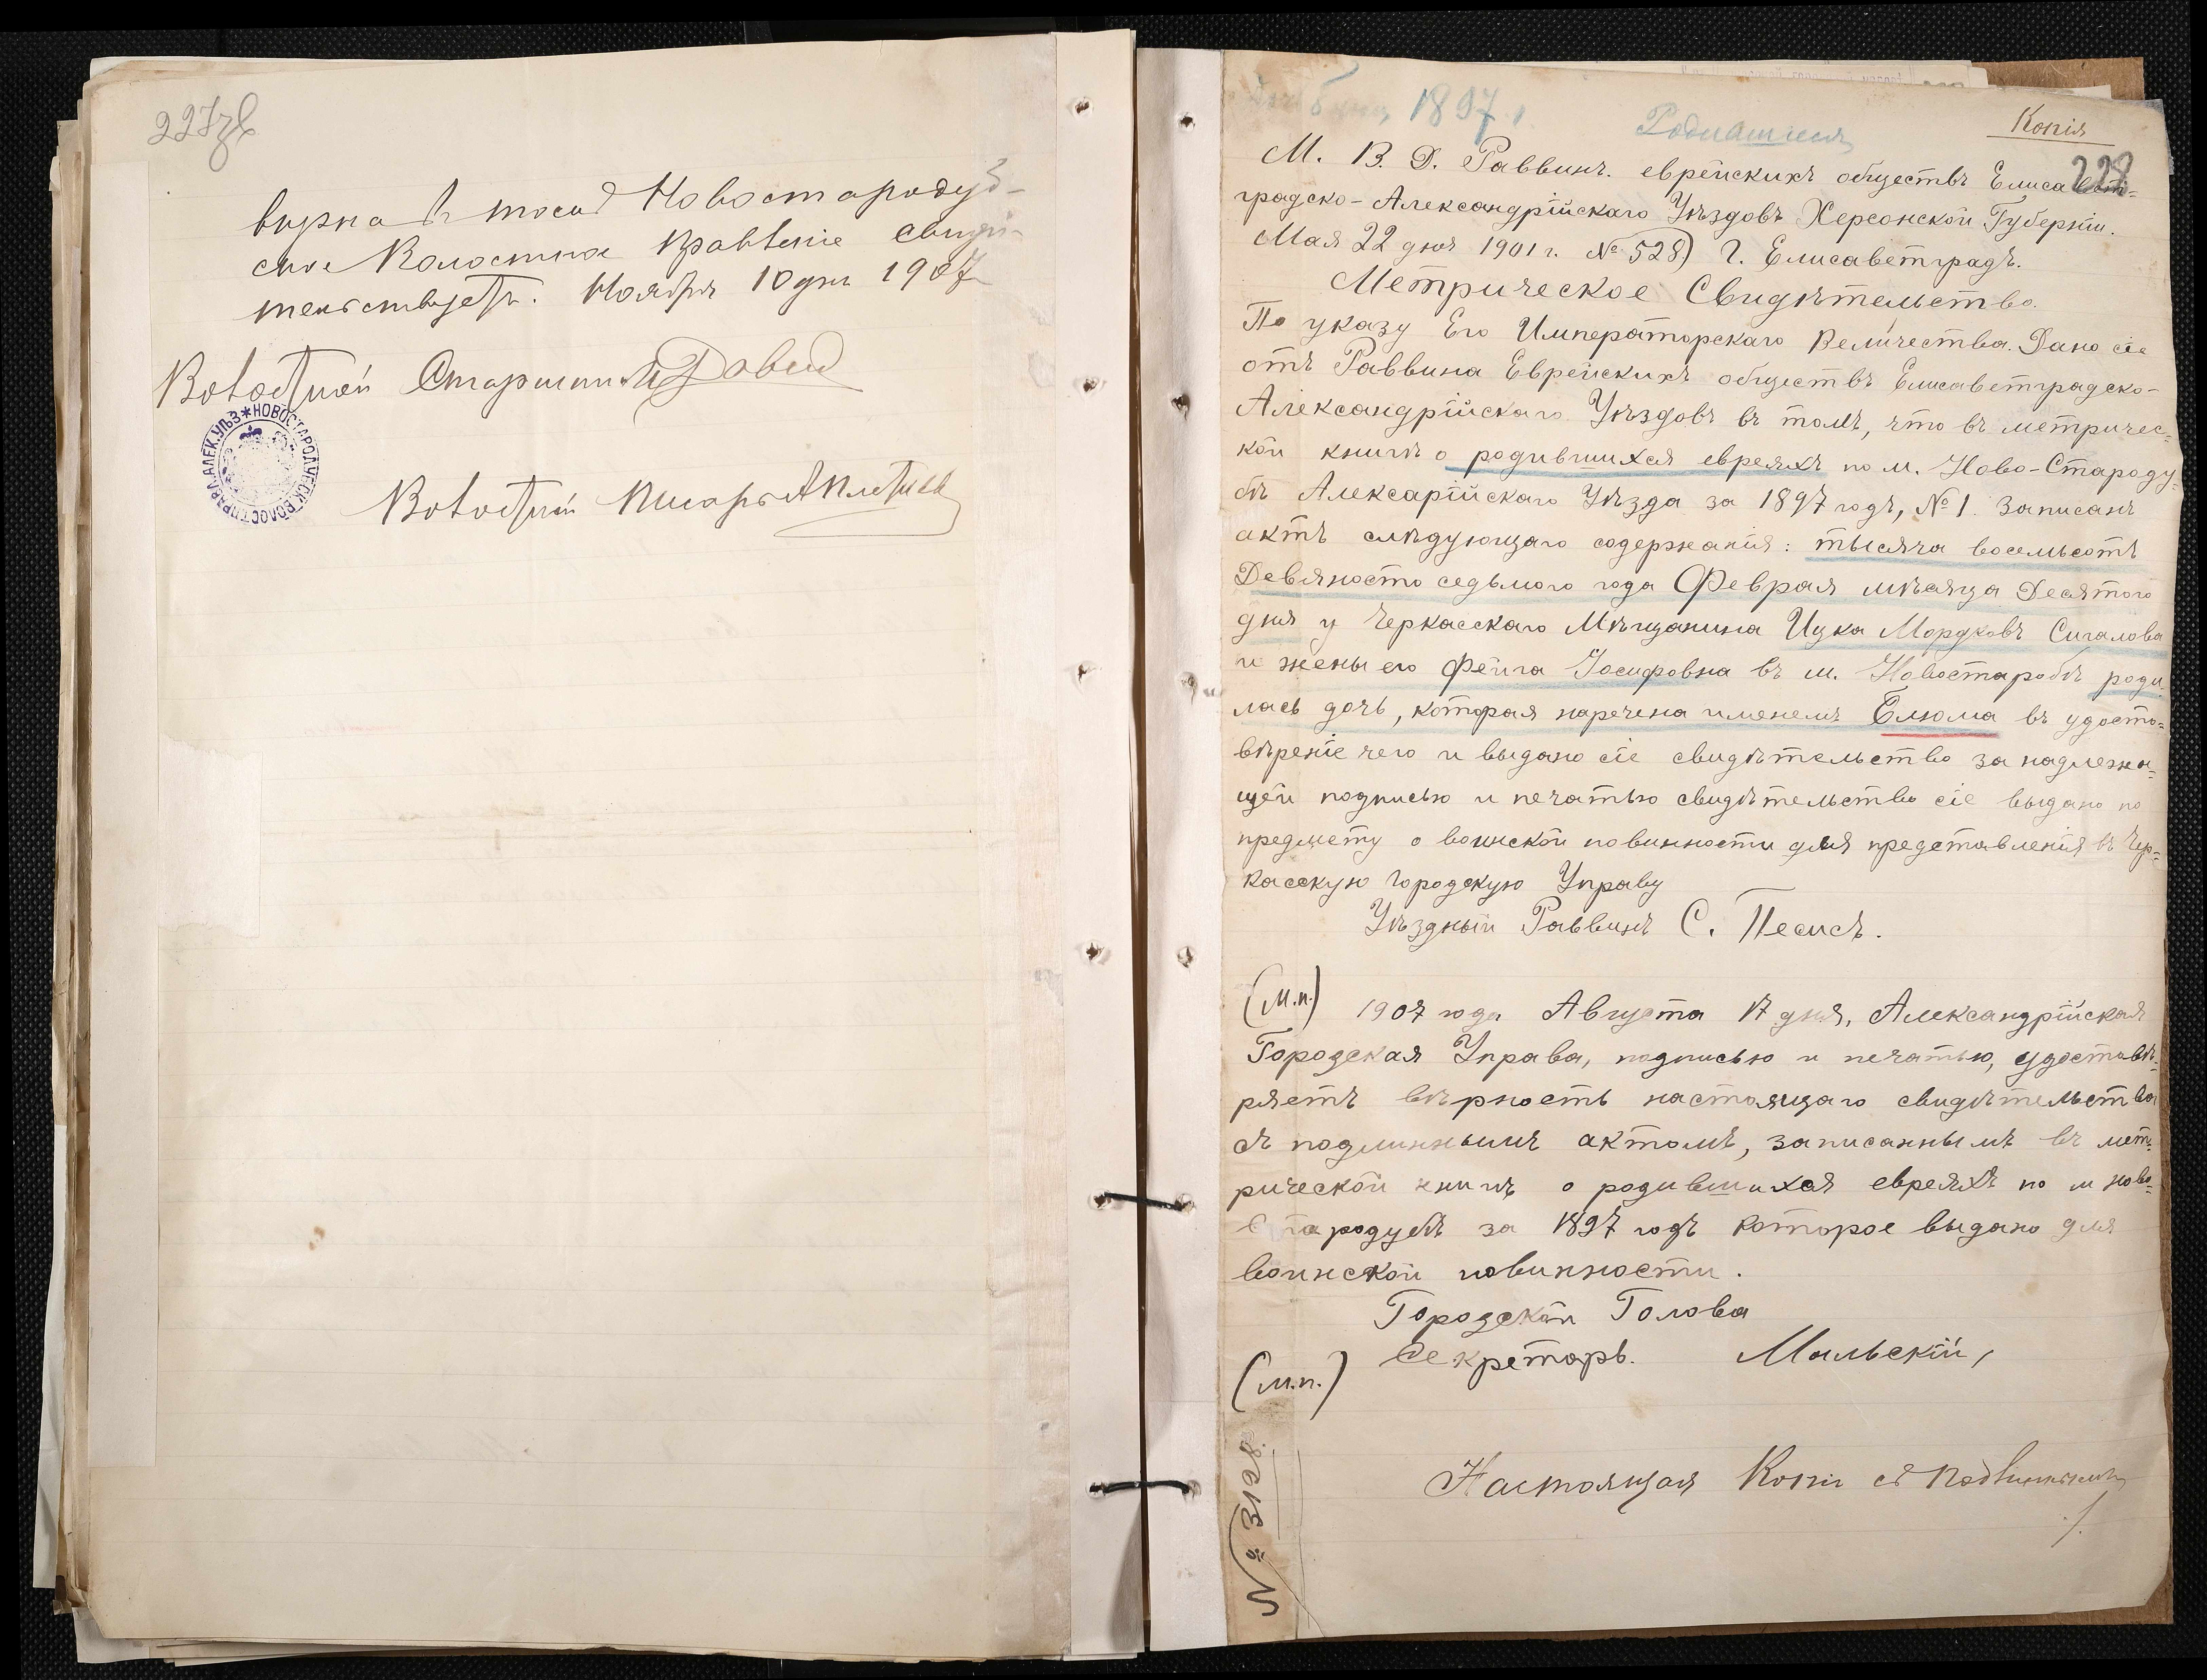 227зв
вѣрна въ томъ Новостародуб-
ское Волостное Правленіе свидѣ-
тельствуетъ. Ноября 10 дня 1907
Волостной Старшина
*НОВОСТАРОДУБСК.ВОЛОСТ.ПРАВЛ.АЛЕК.УѢЗ
Волостной Писарь
1897
Родившіеся
Копія
228
М. В. Д. Раввинъ. еврейскихъ обществъ Елисавет=
градско-Александрійскаго Уѣздовъ Херсонской Губерніи.
Мая 22 дня 1901 г. № 528) Г. Елисаветградъ.
Метрическое Свидѣтельство.
По указу Его Императорскаго Величества. Дано сіе
отъ Раввина Еврейскихъ обществъ Елисаветградско-
Александрійскаго Уѣздовъ въ томъ, что въ метричес=
кой книгѣ о родившихся евреяхъ по м. Ново-Староду=
бѣ Алексарійскаго Уѣзда за 1897 годъ, № 1. Записанъ
актъ слѣдующаго содержанія: тысяча восемьсотъ
Девяносто седьмого года Февраля мѣсяца Десятого
дня у Черкасскаго Мѣщанина Ицка Мордковъ Сигалова
и жены его Фейга Іосифовна въ м. Новостаробѣ роди
лась дочь, которая наречена именемъ Блюма въ удосто=
вѣреніе чего и выдано сіе свидѣтельство за надлежа=
щей подписью и печатью свидѣтельство сіе выдано по
предмету о воинской повинности для представленія въ Чер=
касскую Городскую Управу
Уѣздный Раввинъ С. Песисъ.
(м.п.) 1907 года Августа 17 дня, Александрійская
Городская Управа, подписью и печатью, удостовѣ=
ряетъ вѣрность настоящаго свидѣтельства
съ подлиннымъ актомъ, записаннымъ въ мет=
рической книгѣ о родившихся евреяхъ по м Ново=
Стародубѣ за 1897 годъ которое выдано для
воинской повинности.
Городской Голова
Секретарь. Мальскій,
(м.п.)
Настоящая Копія съ подлиннымъ
№ 3108